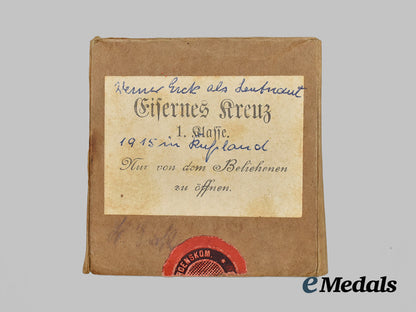 Werner Erck als Leutnant
Eisernes Kreuz
1. Klasse.
1915 in Rußland
Nur von dem Beliehenen
zu öffnen.
DENSKOM.
eMedals